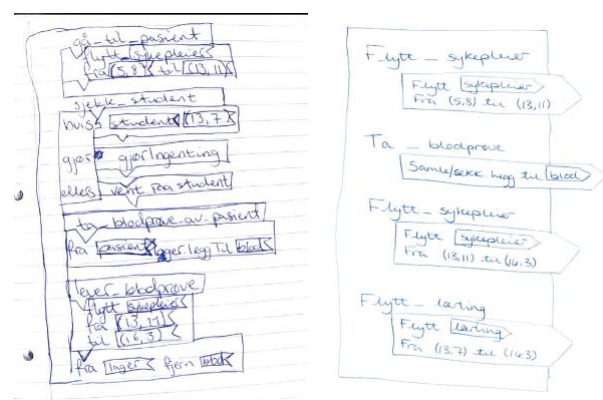 gå_til_pasient
flytt sykepleier
fra (5,8) til (13,11)
sjekk_student
hviss student (13,7)
gjør gjørIngenting
elles vent på student
ta_blodprøve_av_pasient
fra pasient lager.legg Til blod
lever_blodprøve
flytt sykepleier
fra (13,11)
til (16,3)
fra lager fjern blod
Flytt_sykepleier
Flytt sykepleier
Fra (5,8) til (13,11)
Ta_blodprøve
Samle/sekk legg til blod
Flytt_sykepleier
Flytt sykepleier
Fra (13,11) til (16,3)
Flytt_lærling
Flytt lærling
Fra (13,7) til (16,3)